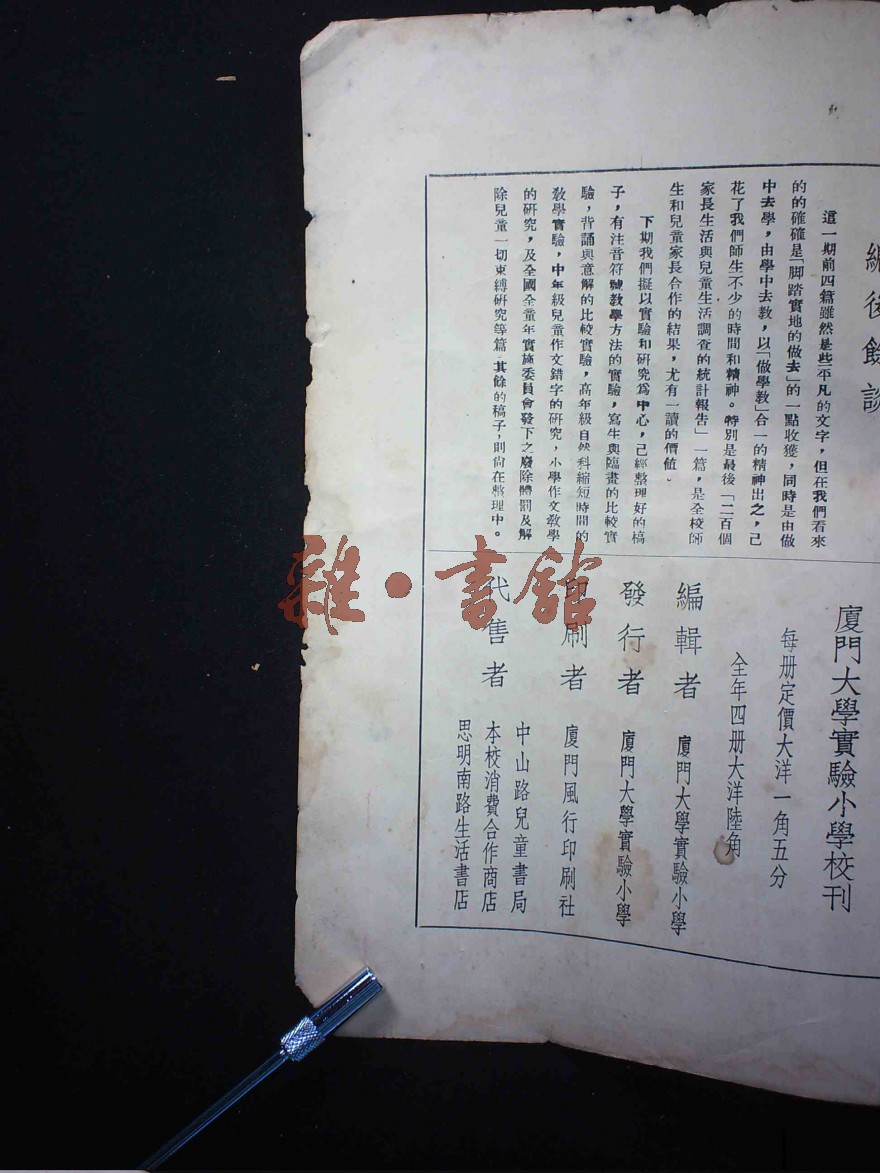 編後餘談
這一期前四篇雖然是些平凡的文字，但在我們看來
的的確確是「脚踏實地的做去」的一點收獲，同時是由做
中去學，由學中去教，以「做學教」合一的精神出之，已
花了我們師生不少的時間和精神。特別是最後「二百個
家長生活與兒童生活調查的統計報告」一篇，是全校師
生和兒童家長合作的結果，尤有一讀的價值。
下期我們擬以實驗和研究爲中心，已經整理好的稿
子，有注音符號教學方法的實驗，寫生與臨畫的比較實
驗，背誦與意解的比較實驗，高年級自然科縮短時間的
教學實驗，中年級兒童作文錯字的研究，小學作文教學
的研究，及全國全童年實施委員會發下之廢除體罰及解
除兒童一切束縛研究等篇 其餘的稿子，則尙在整理中。
廈門大學實驗小學校刊
每册定價大洋一角五分
全年四册大洋陸角
編輯者 廈門大學實驗小學
發行者 廈門大學實驗小學
印刷者 廈門風行印刷社
代售者 中山路兒童書局
本校消費合作商店
思明南路生活書店
雜·書館